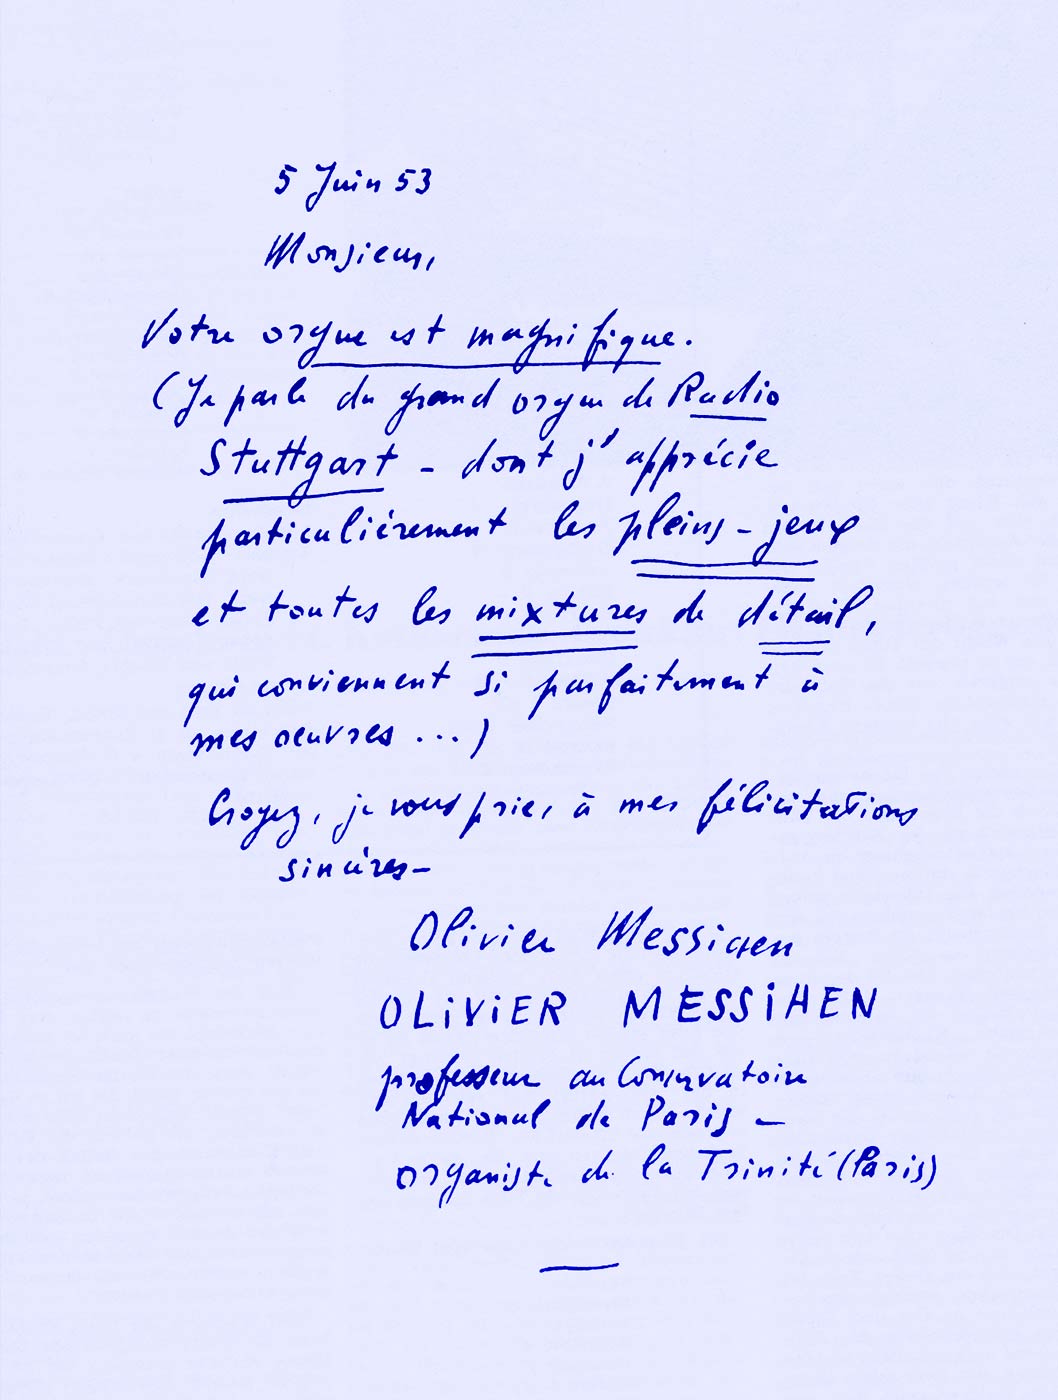 5 Juin 53
Monsieur,
Votre orgue est magnifique.
(Je parle du grand orgue de Radio
Stuttgart - dont j'apprécie
particulièrement les pleins-jeux
et toutes les mixtures de détail,
qui conviennent si parfaitement à
mes oeuvres ...)
Croyez, je vous prie, à mes félicitations
sincères-
Olivier Messiaen
OLiViER MESSiAEN
professeur au Conservatoire
National de Paris -
organiste de la Trinité (Paris)